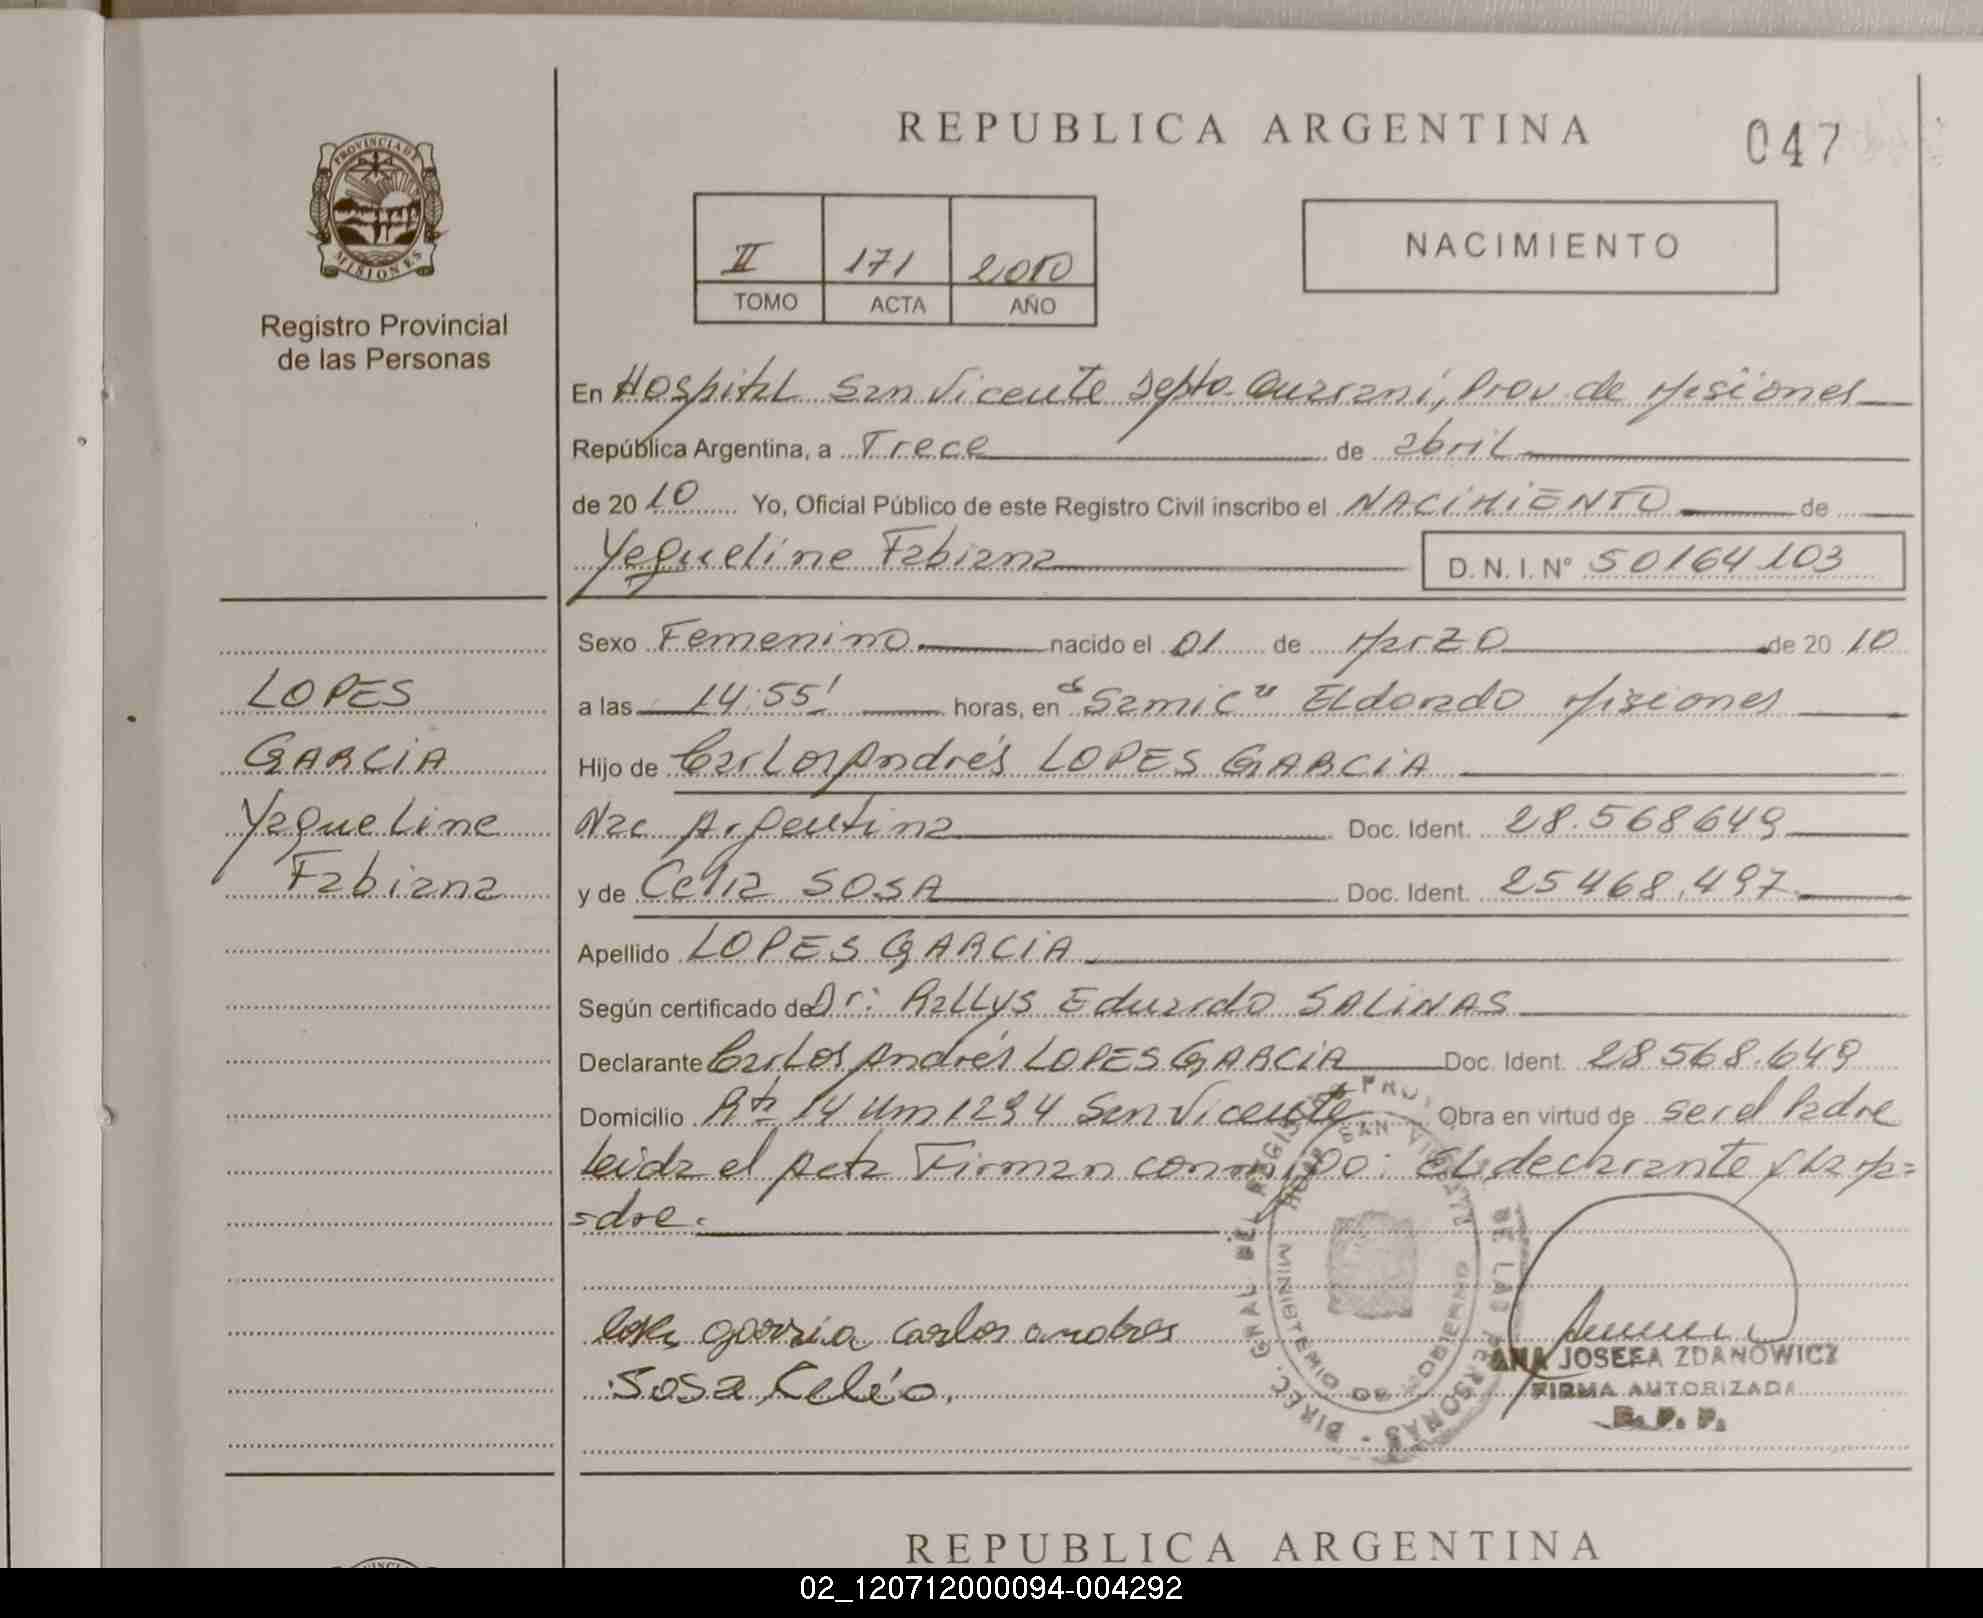 REPUBLICA ARGENTINA
047
PROVINCIA DE
MISIONES
Registro Provincial
de las Personas
II 171 2010
TOMO ACTA AÑO
NACIMIENTO
En Hospital San Vicente Depto. Guarani, Prov. de Misiones
República Argentina, a Trece de abril
de 2010 Yo, Oficial Público de este Registro Civil inscribo el NACIMIENTO de
Yequeline Fabiana D.N.I. N° 50164103
Sexo Femenino nacido el 01 de Marzo de 2010
a las 14:55' horas, en "Samic" Eldorado Misiones
Hijo de Carlos Andrés LOPES GARCIA
Nac Argentina Doc. Ident. 28.568649
y de Celia SOSA Doc. Ident. 25468.497
Apellido LOPES GARCIA
Según certificado de Dr: Rallys Eduardo SALINAS
Declarante Carlos Andrés LOPES GARCIA Doc. Ident. 28568.649
Domicilio Rta 14 Km 1294 San Vicente Obra en virtud de ser el Padre
leida el Acta Firman conmigo: El declarante y la Ma=
=dre.
garcia carlos andres
Sosa Celia.
LOPES
GARCIA
Yaqueline
Fabiana
DIREC. GRAL. DEL REGISTRO PROV. DE LAS PERSONAS
SAN VICENTE
MINISTERIO DE GOBIERNO
ANA JOSEFA ZDANOWICZ
FIRMA AUTORIZADA
R. P. P.
REPUBLICA ARGENTINA
02_120712000094-004292